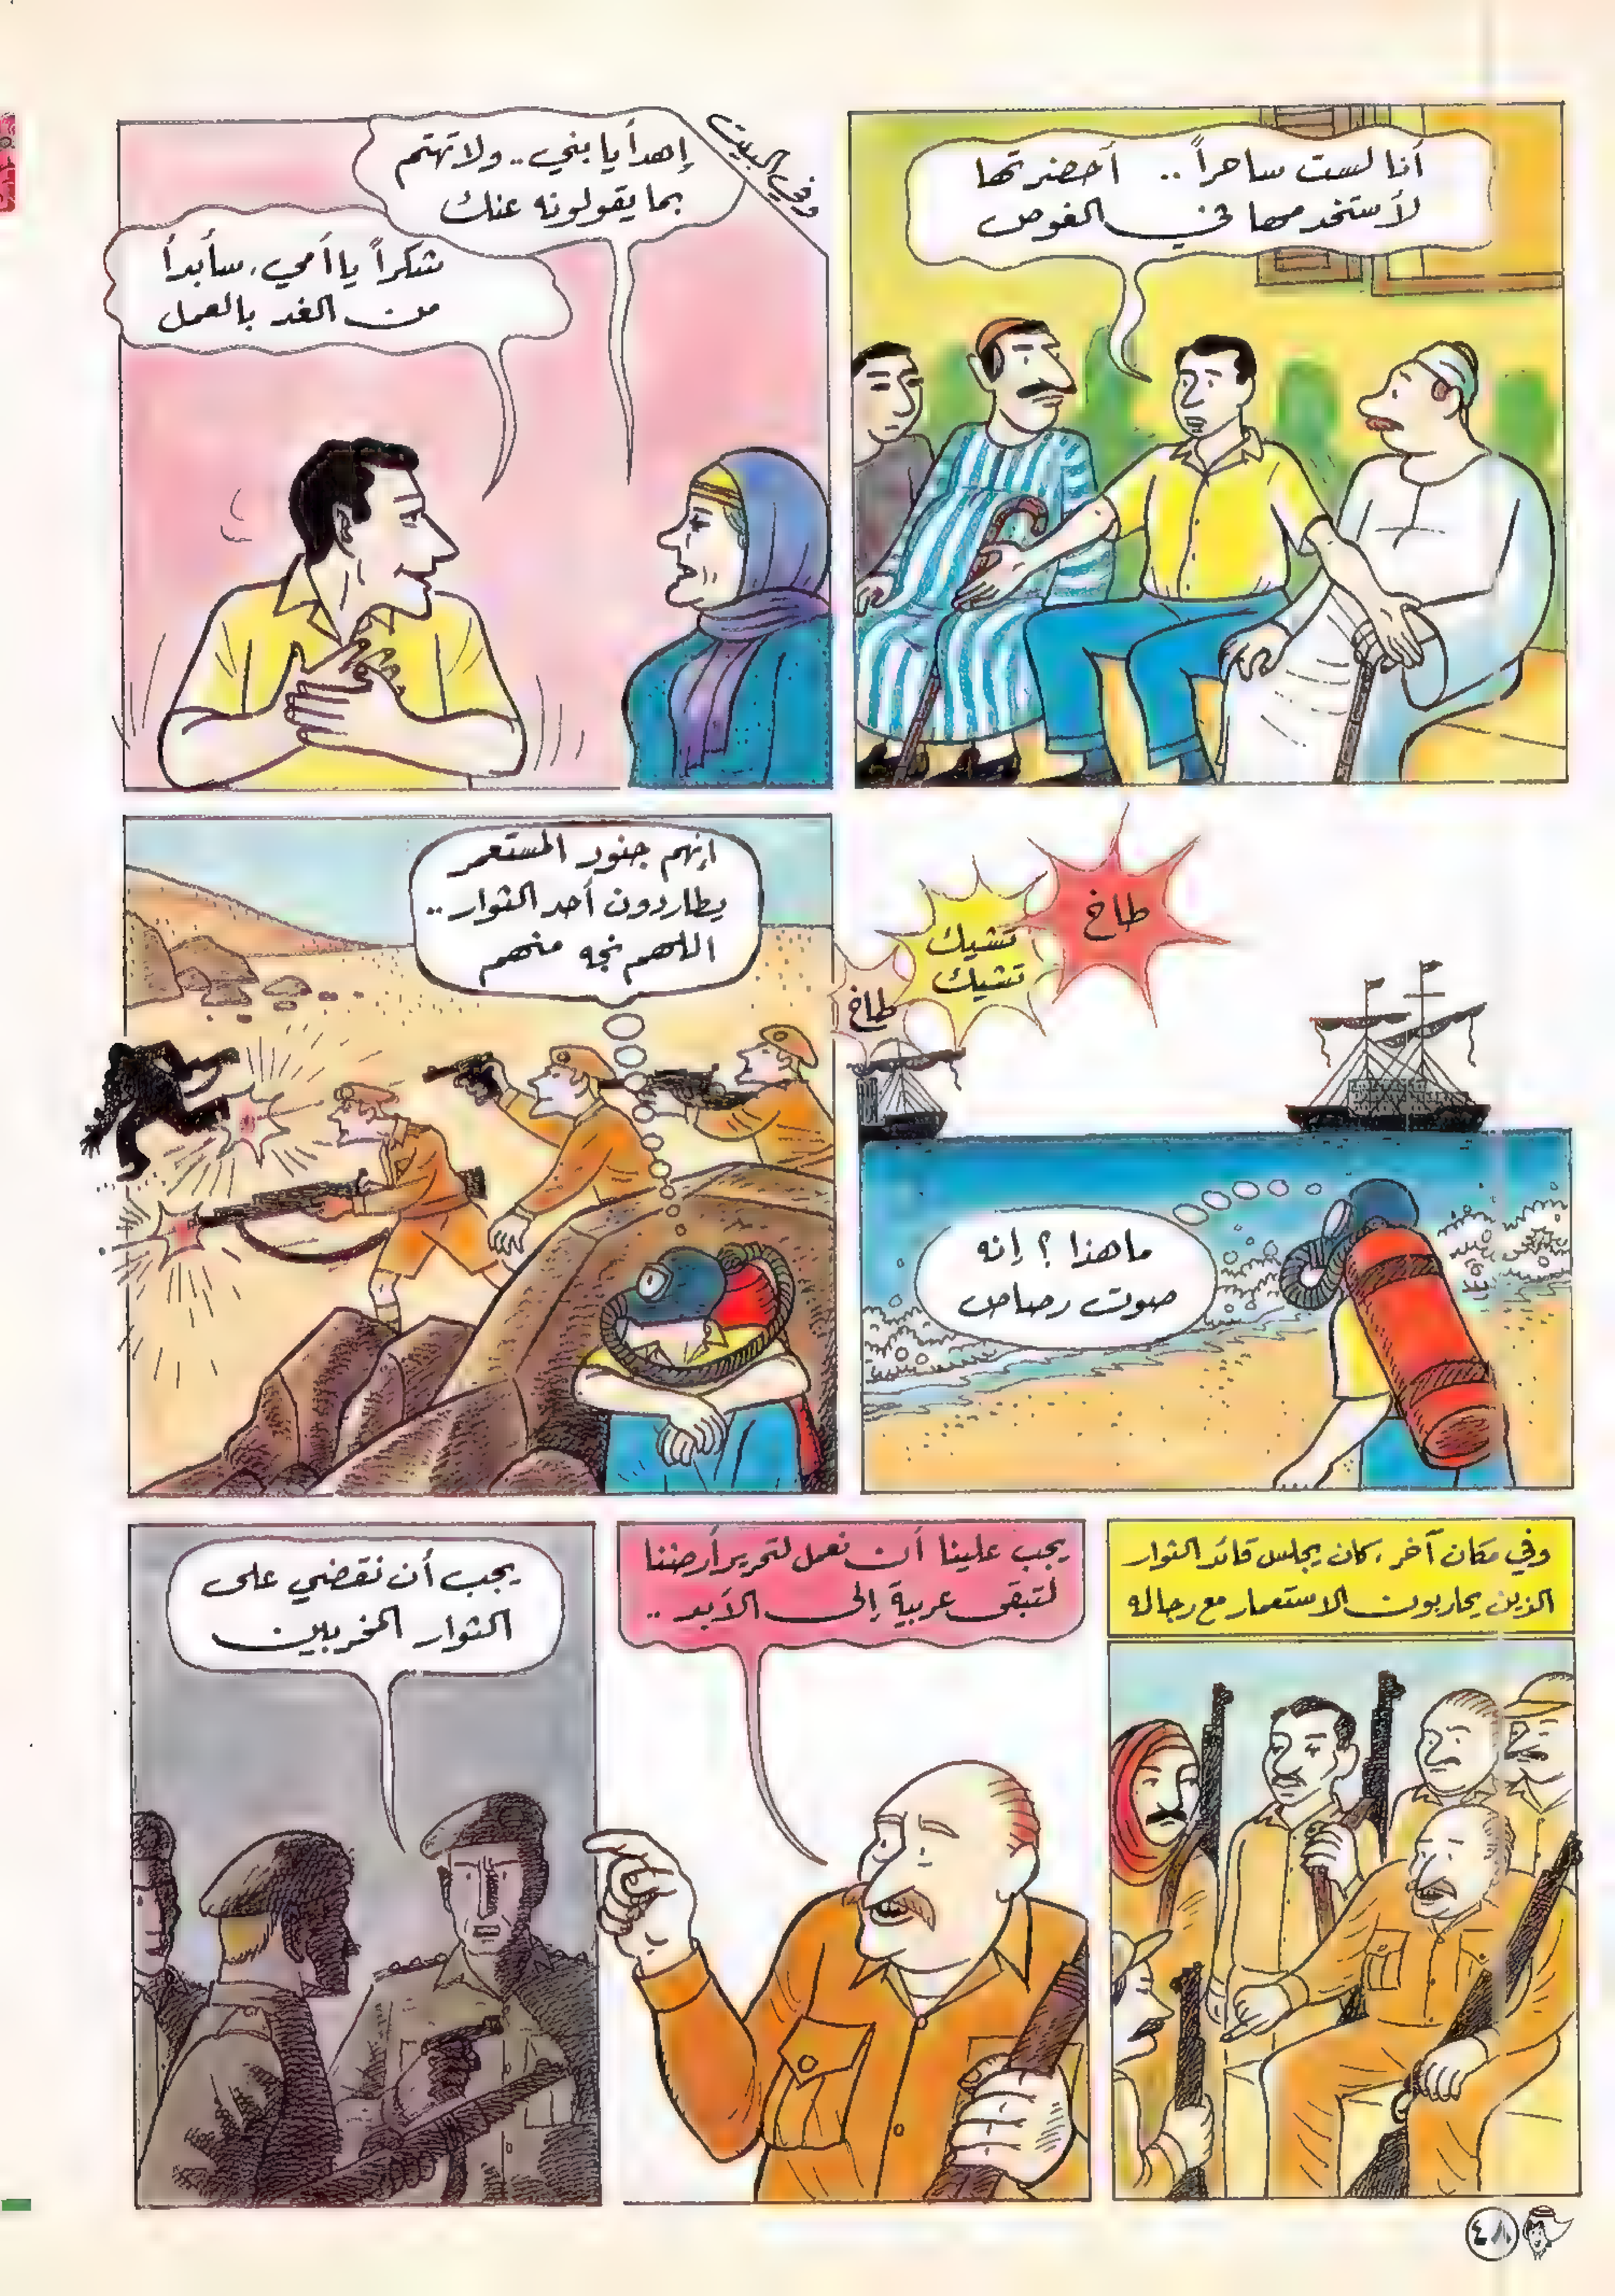 أنا لست ساحراً .. أحضرتها
لأستخدمها في الغوص
وفي البيت
إهدأ يا بني .. ولا تهتم
بما يقولونه عنك
شكراً يا أمي، سأبدأ
من الغد بالعمل
طاخ
تشيك
تشيك
طاخ
ما هذا ؟ إنه
صوت رصاص
إنهم جنود المستعمر
يطاردون أحد الثوار ..
اللهم نجه منهم
وفي مكان آخر، كان يجلس قائد الثوار
الذين يحاربون الاستعمار مع رجاله
يجب علينا أن نعمل لتحرير أرضنا
لتبقى عربية إلى الأبد ..
يجب أن نقضي على
الثوار المخربين
٤٨